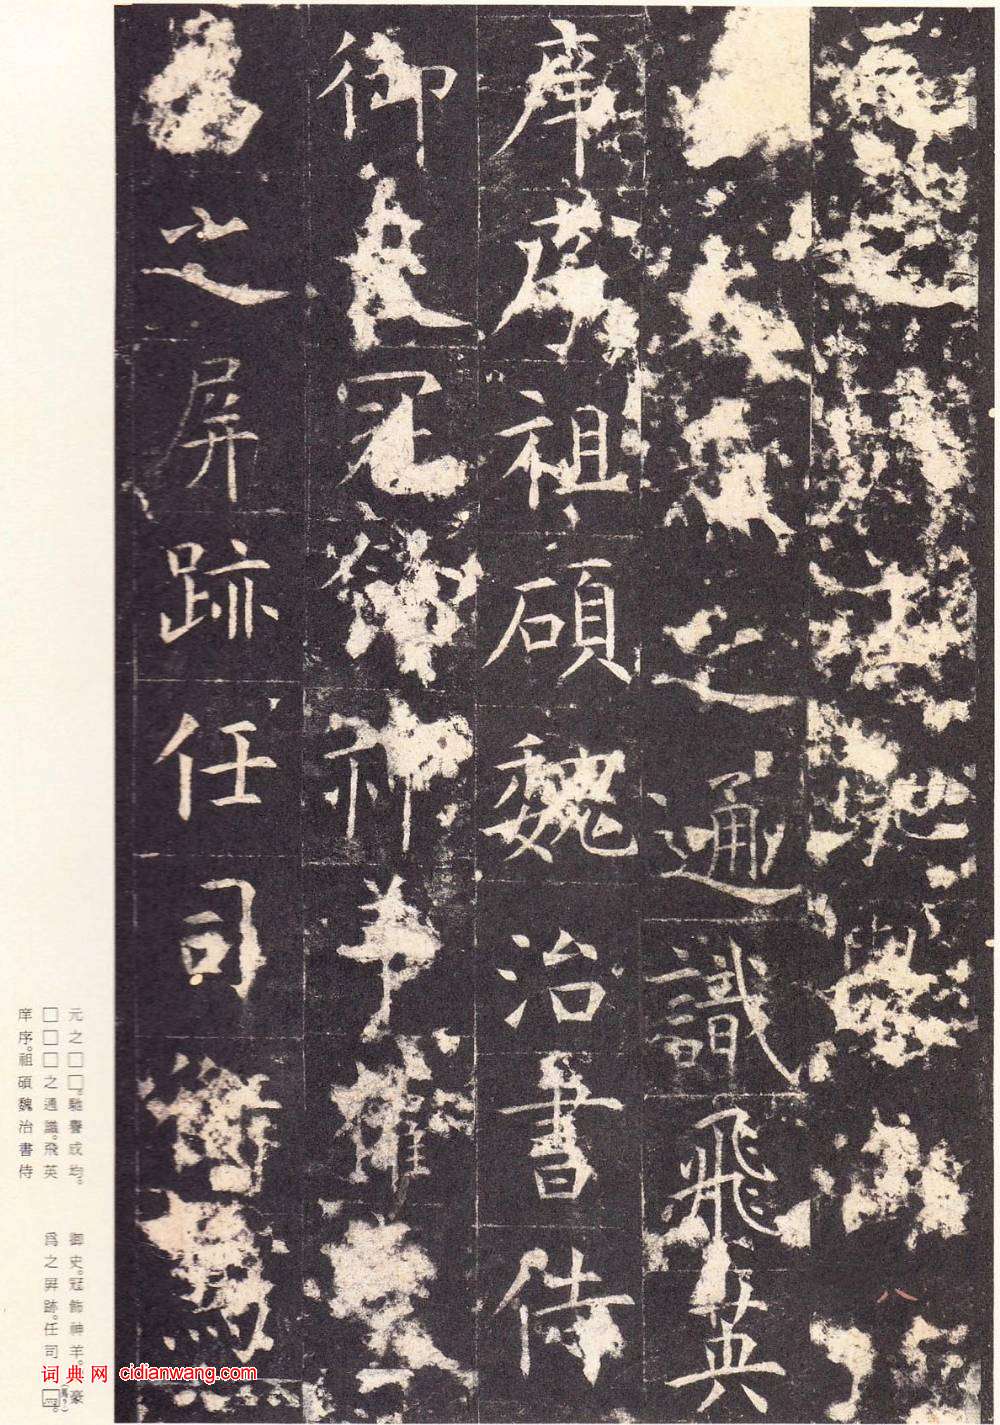 元之馳譽
之通識飛英
庠序祖碩魏治書侍
御史冠飾神羊權豪
爲之屏跡任司
八
元之□□。馳譽成均。
□□□之通識。飛英
庠序。祖碩魏治書侍
御史。冠飾神羊。豪
爲之屏跡。任司
词典网 cidianwang.com